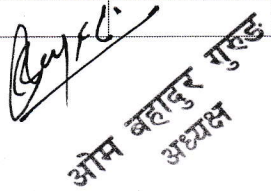 ओम बहादुर गुरुङ
अध्यक्ष